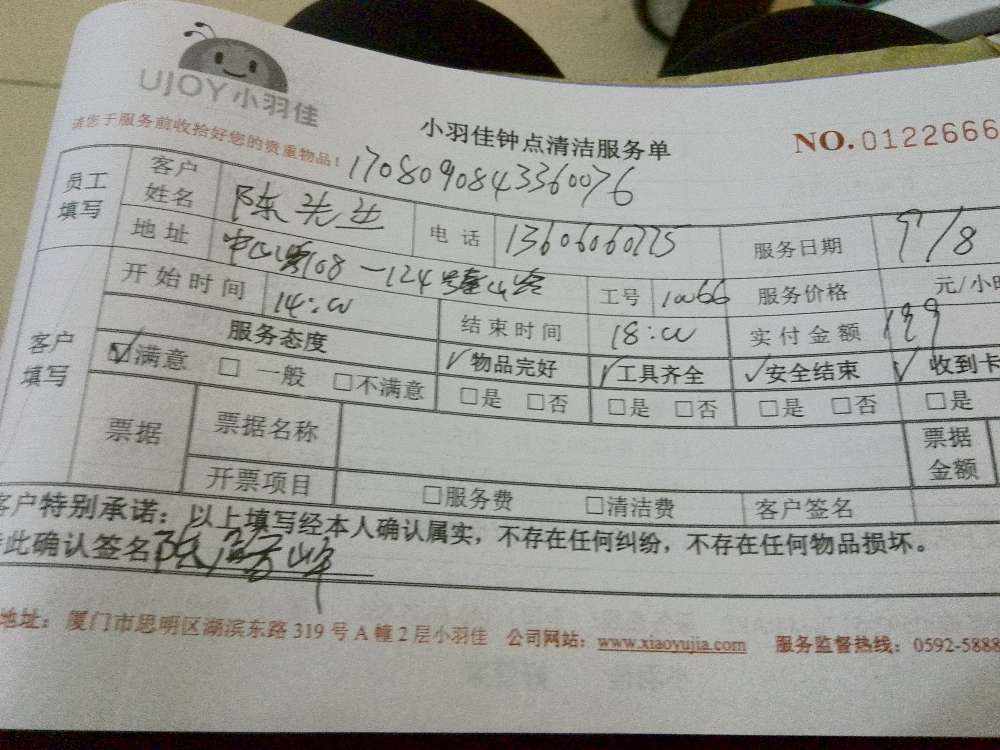 UJOY小羽佳
小羽佳钟点清洁服务单
NO.0122666
请您于服务前收拾好您的贵重物品!
17080909843360076
员工填写 客户姓名 陈先生 电话 13606060225 服务日期 9/8
地址 中山路108-124号 工号 10066 服务价格 元/小时
开始时间 14:00 结束时间 18:00 实付金额 199
客户填写 服务态度 ✓物品完好 ✓工具齐全 ✓安全结束 ✓收到卡
☑满意 □一般 □不满意 □是 □否 □是 □否 □是 □否 □是
票据 票据名称 票据金额
开票项目 □服务费 □清洁费 客户签名
客户特别承诺:以上填写经本人确认属实,不存在任何纠纷,不存在任何物品损坏。
此确认签名
地址:厦门市思明区湖滨东路319号A幢2层小羽佳 公司网站:www.xiaoyujia.com 服务监督热线:0592-5888